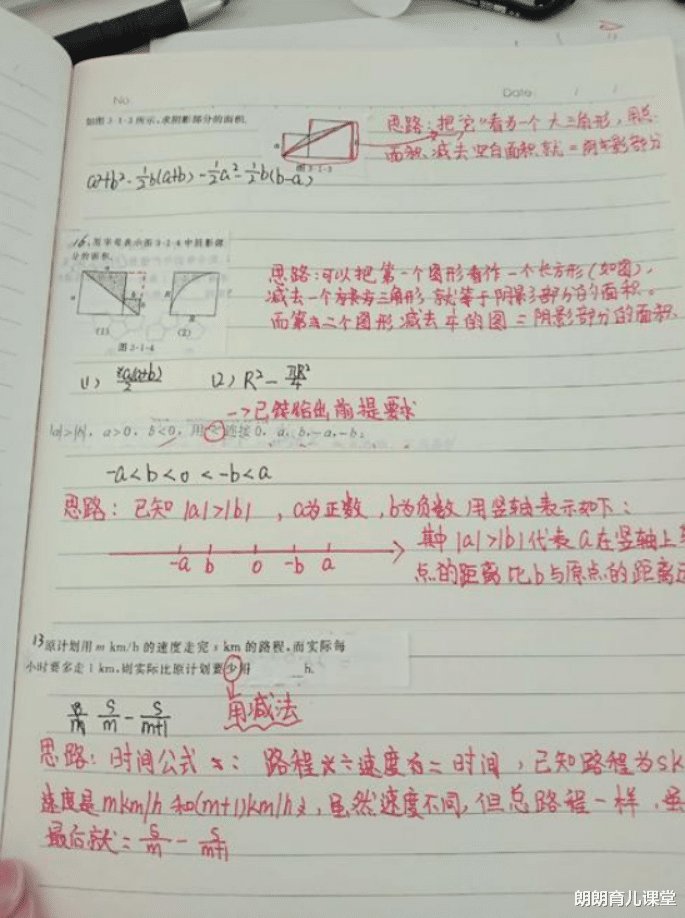 No.
Date
如图 3-1-3 所示,求阴影部分的面积.
思路:把"它"看为一个大三角形,用总
面积减去空白面积就=阴影部分
图 3-1-3
a²+b²-½b(a+b)-½a²-½b(b-a)
16.用字母表示图 3-1-4 中阴影部
分的面积.
思路:可以把第一个图形看作一个长方形(如图),
减去一个三角形就等于阴影部分的面积。
而第二个图形减去¼的图=阴影部分的面积
(1)
(2)
图 3-1-4
(1)
(2) R²-πR²/4
→已经给出前提要求
|a|>|b|, a>0, b<0, 用"<"连接 0, a, b, -a, -b;
-a<b<0<-b<a
思路:已知|a|>|b|,a为正数,b为负数 用竖轴表示如下:
-a b 0 -b a
其中|a|>|b|代表a在竖轴上
点的距离比b与原点的距离
13原计划用 m km/h 的速度走完 s km 的路程,而实际每
小时要多走 1 km,则实际比原计划要少用 ___h.
s/m - s/m+1
用减法
思路:时间公式:路程÷速度=时间,已知路程为sk
速度是mkm/h和(m+1)km/h,虽然速度不同,但总路程一样,
最后就=s/m - s/m+1
朗朗育儿课堂